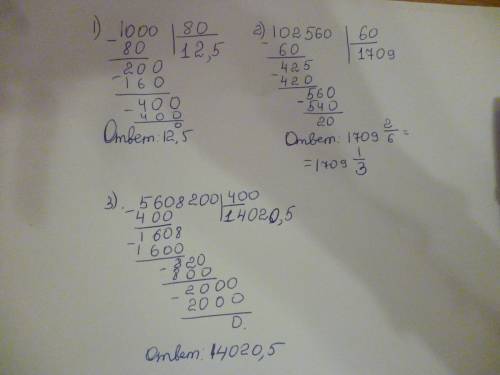 1) 1000 | 80
- 80 12,5
200
- 160
- 400
400
0
Ответ: 12,5
2) 102560 | 60
- 60 1709
425
- 420
560
- 540
20
Ответ: 1709 2/6 =
= 1709 1/3
3). 5608200 | 400
- 400 14020,5
1608
- 1600
- 820
800
- 2000
2000
0.
Ответ: 14020,5